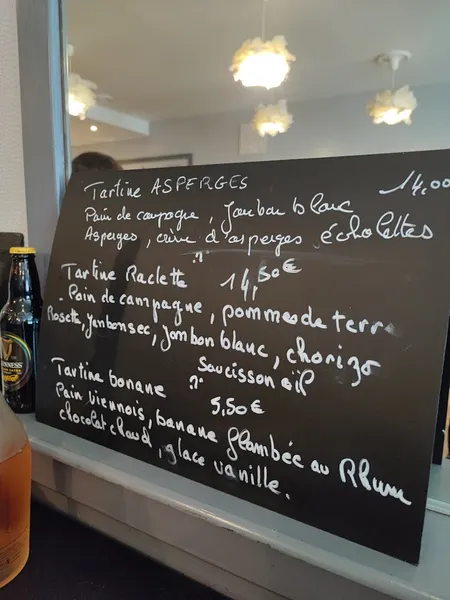 Tartine ASPERGES 14,00
Pain de campagne, Jambon blanc
Asperges, crème d'asperges échalottes
Tartine Raclette 14,50€
Pain de campagne, pommes de terre
Rosette, Jambon sec, Jambon blanc, chorizo
Saucisson ail
Tartine banane 5,50€
Pain Viennois, banane flambée au Rhum
chocolat chaud, glace vanille.
GUINNESS